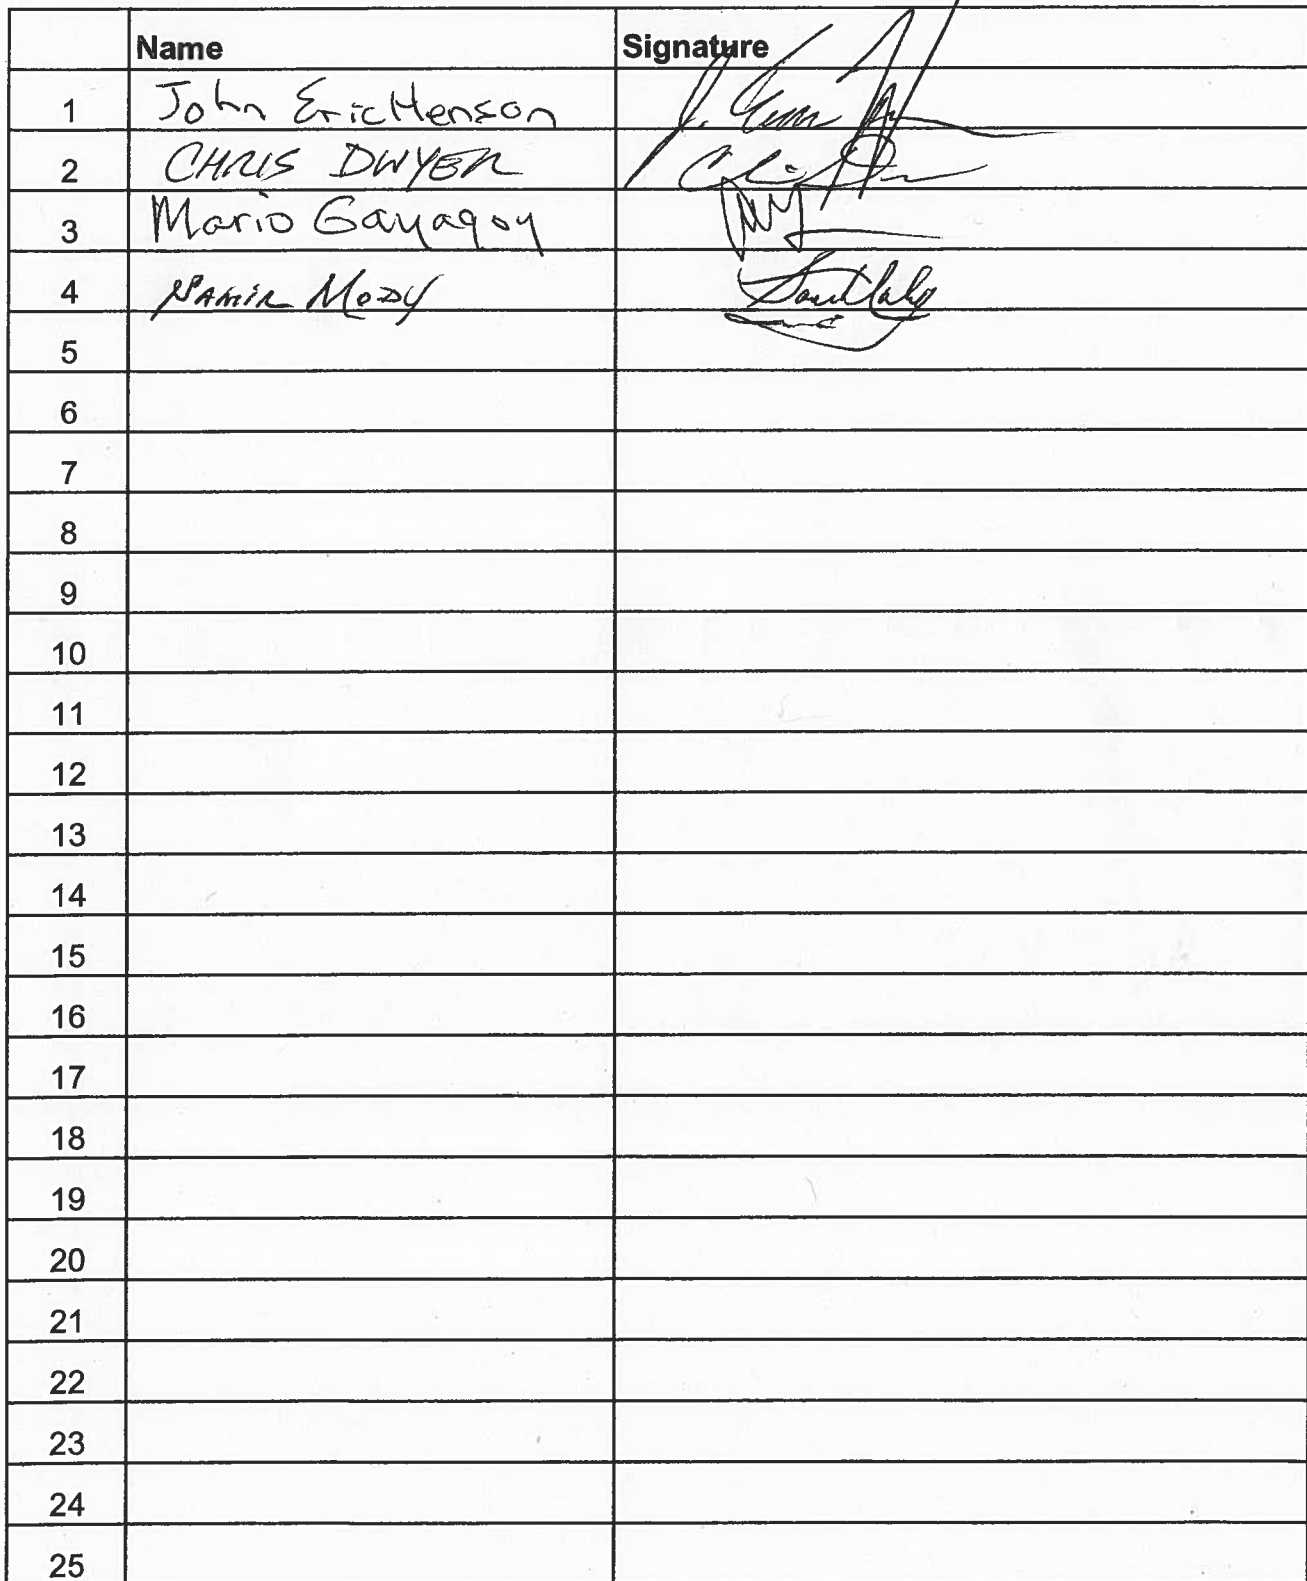 Name Signature
1 John Eric Henson
2 CHRIS DWYER
3 Mario Gayagoy
4 SAMIR MODY
5
6
7
8
9
10
11
12
13
14
15
16
17
18
19
20
21
22
23
24
25